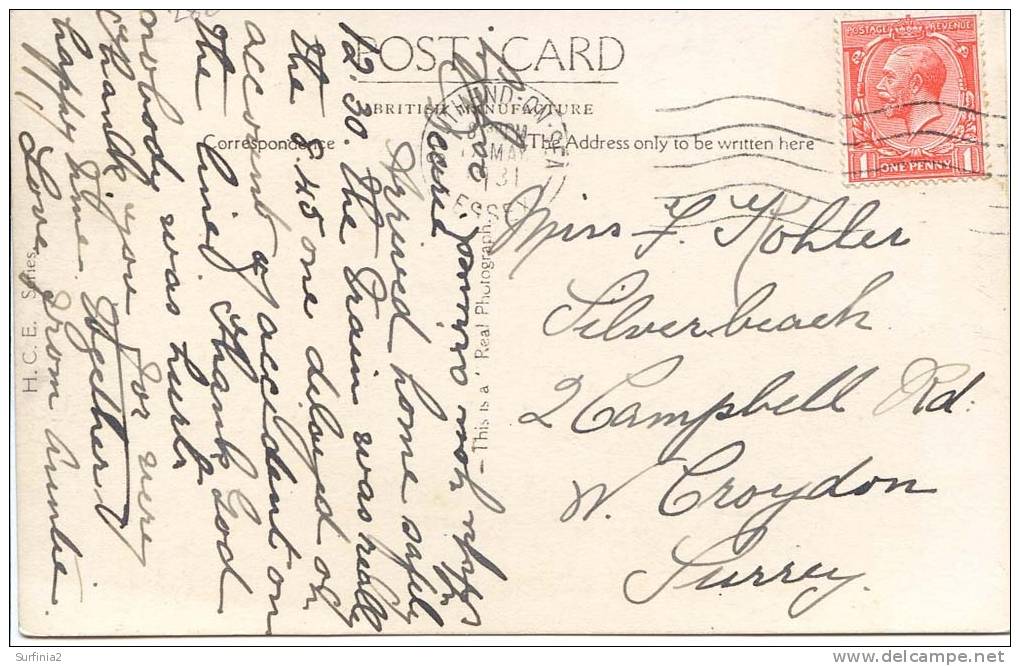 POST CARD
BRITISH MANUFACTURE
Correspondence
The Address only to be written here
POSTAGE REVENUE
1 ONE PENNY 1
SOUTHEND-ON-SEA
MAY
ESSEX
Arrived home safely
12.30. the train was really
the 8.45 one delayed on
account of accident on
the line, thank God
nobody was hurt.
Thank you for very
happy time together
Love, from Auntie.
Miss F. Kohler
Silverbeach
2 Campbell Rd.
W. Croydon
Surrey.
This is a "Real Photograph."
H. C. E. Series.
Surfinia2
delcampe.net